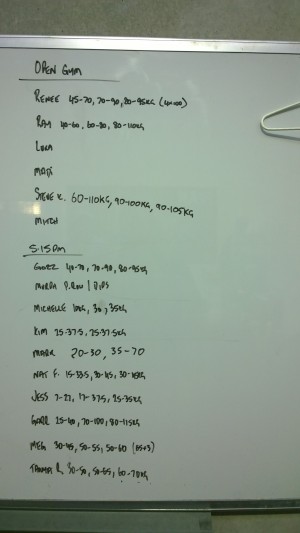 OPEN GYM
RENEE 45-70, 70-90, 80-95KG (4x100)
RAY 40-60, 60-80, 80-110KG
LUKA
MATT
STEVE K. 60-110KG, 90-100KG, 90-105KG
MITCH
5:15PM
40-70, 70-90, 80-95KG
P.ROW / DIPS
MICHELLE 10KG, 30, 35KG
KIM 25-37.5, 25-37.5KG
MARK 20-30, 35-70
NAT F. 15-32.5, 30-45, 30-45KG
JESS 7-22, 17-37.5, 25-35KG
25-40, 70-100, 80-115KG
MEG 30-45, 50-55, 50-60
30-50, 50-65, 60-70KG